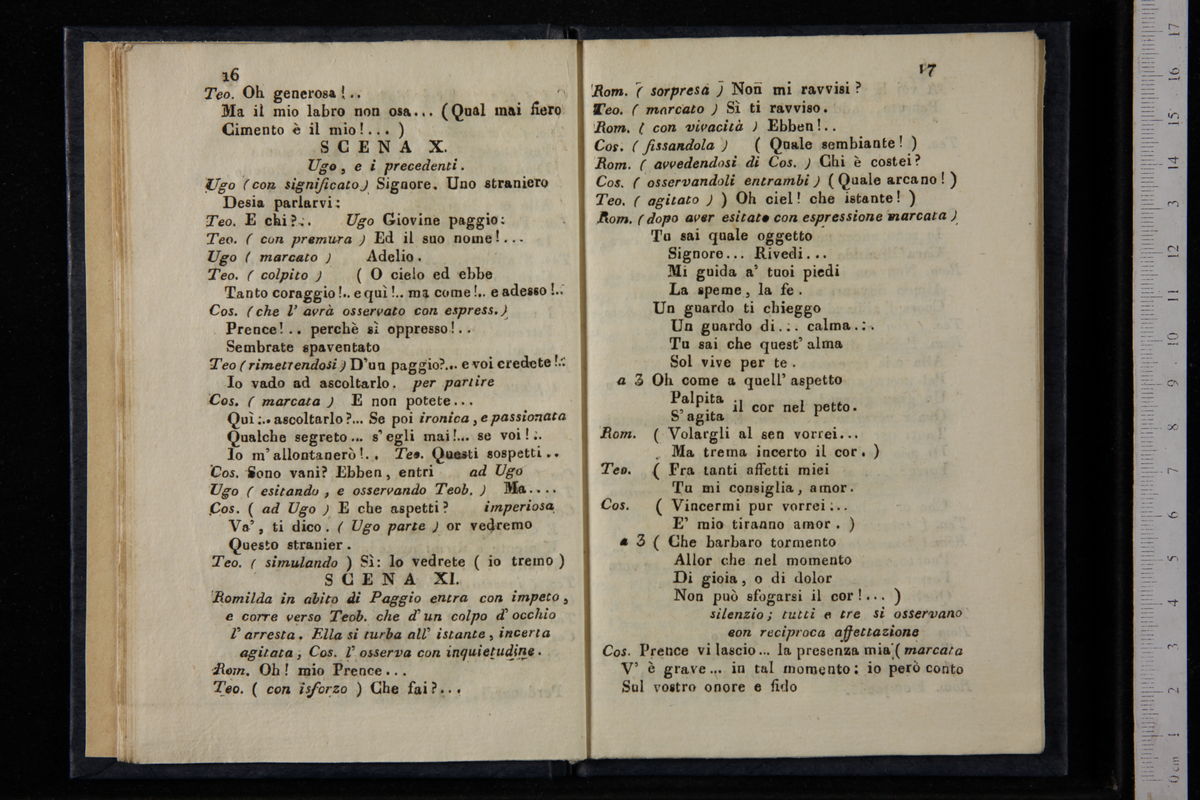 16
Teo. Oh generosa!..
Ma il mio labro non osa... (Qual mai fiero
Cimento è il mio!... )
SCENA X.
Ugo, e i precedenti.
Ugo (con significato) Signore. Uno straniero
Desia parlarvi:
Teo. E chi?.. Ugo Giovine paggio:
Teo. ( con premura ) Ed il suo nome!...
Ugo ( marcato ) Adelio.
Teo. ( colpito ) ( O cielo ed ebbe
Tanto coraggio!.. e quì!.. ma come!.. e adesso!..
Cos. (che l' avrà osservato con espress.)
Prence!.. perchè sì oppresso!..
Sembrate spaventato
Teo (rimettendosi) D'un paggio?... e voi credete!..
Io vado ad ascoltarlo. per partire
Cos. ( marcata ) E non potete...
Quì... ascoltarlo?... Se poi ironica, e passionata
Qualche segreto... s' egli mai!... se voi!..
Io m' allontanerò!.. Teo. Questi sospetti..
Cos. Sono vani? Ebben, entri ad Ugo
Ugo ( esitando, e osservando Teob. ) Ma....
Cos. ( ad Ugo ) E che aspetti? imperiosa
Va', ti dico. ( Ugo parte ) or vedremo
Questo stranier.
Teo. ( simulando ) Sì: lo vedrete ( io tremo )
SCENA XI.
Romilda in abito di Paggio entra con impeto,
e corre verso Teob. che d' un colpo d' occhio
l' arresta. Ella si turba all' istante, incerta
agitata, Cos. l' osserva con inquietudine.
Rom. Oh! mio Prence...
Teo. ( con isforzo ) Che fai?...
17
Rom. ( sorpresa ) Non mi ravvisi?
Teo. ( marcato ) Sì ti ravviso.
Rom. ( con vivacità ) Ebben!..
Cos. ( fissandola ) ( Quale sembiante! )
Rom. ( avvedendosi di Cos. ) Chi è costei?
Cos. ( osservandoli entrambi ) ( Quale arcano! )
Teo. ( agitato ) ) Oh ciel! che istante! )
Rom. (dopo aver esitato con espressione marcata )
Tu sai quale oggetto
Signore... Rivedi...
Mi guida a' tuoi piedi
La speme, la fe.
Un guardo ti chieggo
Un guardo di... calma...
Tu sai che quest' alma
Sol vive per te.
a 3 Oh come a quell' aspetto
Palpita
S' agita il cor nel petto.
Rom. ( Volargli al sen vorrei...
Ma trema incerto il cor. )
Teo. ( Fra tanti affetti miei
Tu mi consiglia, amor.
Cos. ( Vincermi pur vorrei...
E' mio tiranno amor. )
a 3 ( Che barbaro tormento
Allor che nel momento
Di gioia, o di dolor
Non può sfogarsi il cor!... )
silenzio; tutti e tre si osservano
con reciproca affettazione
Cos. Prence vi lascio... la presenza mia ( marcata
V' è grave... in tal momento: io però conto
Sul vostro onore e fido
17
16
15
14
13
12
11
10
9
8
7
6
5
4
3
2
1
0 cm